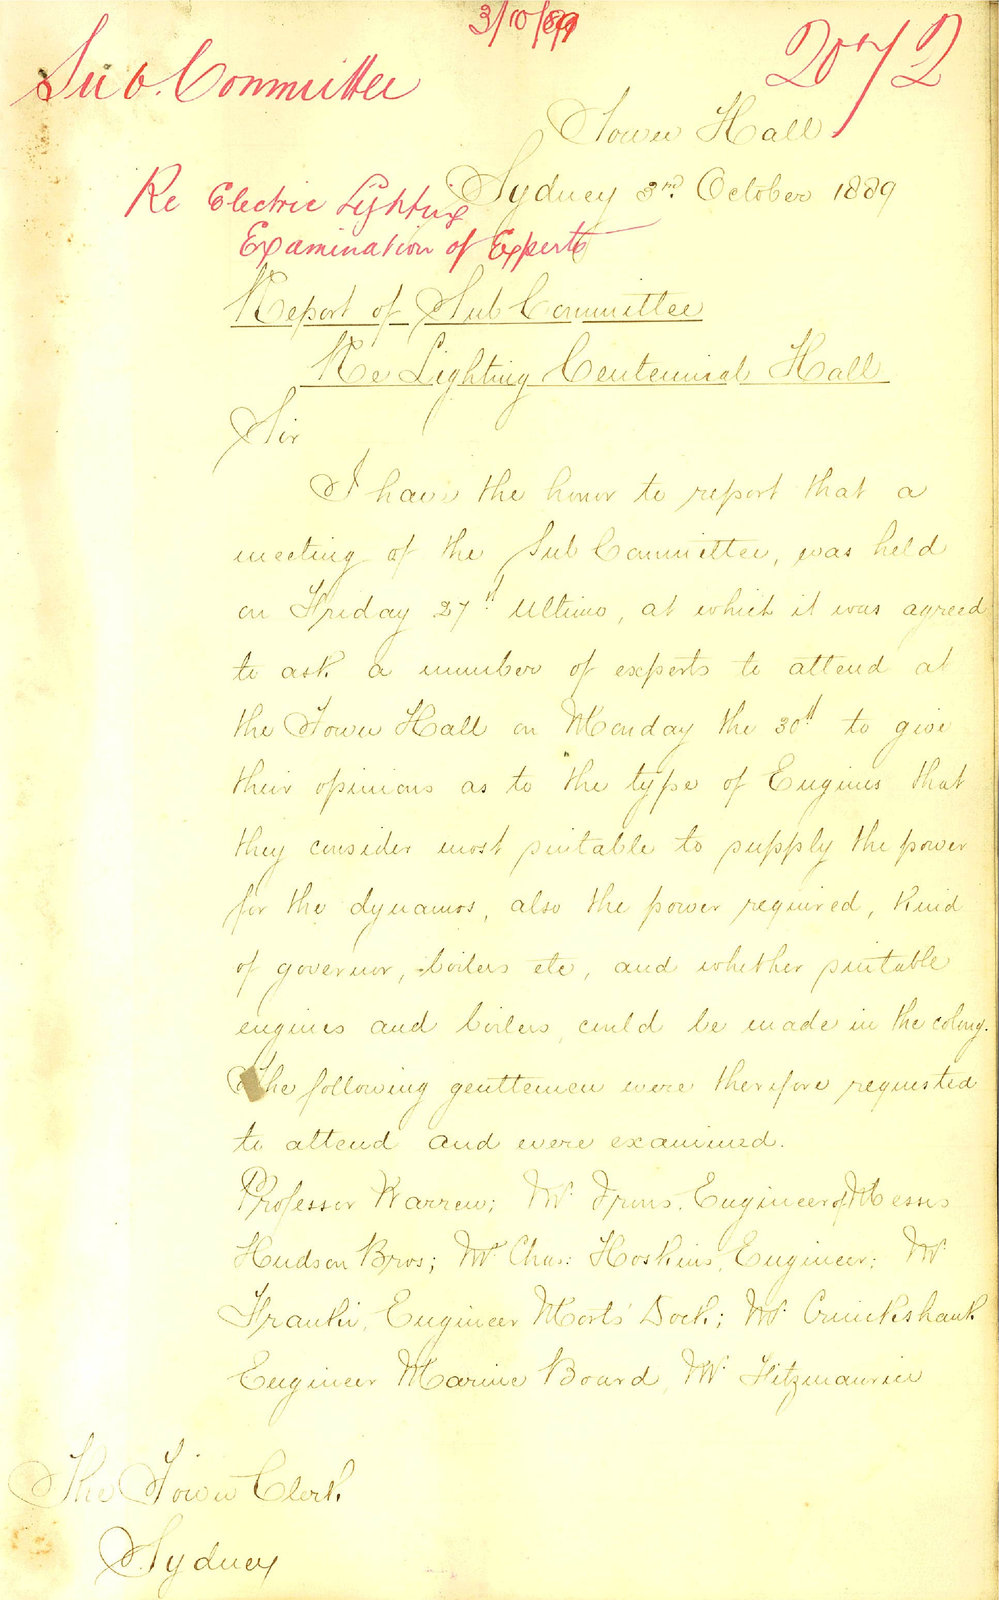 3/10/89
Sub. Committee
2072
Town Hall
Sydney 3rd October 1889
Re Electric Lighting
Examination of Experts
Report of Sub Committee
Re Lighting Centennial Hall
Sir
I have the honor to report that a
meeting of the Sub Committee, was held
on Friday 27th Ultimo, at which it was agreed
to ask a number of experts to attend at
the Town Hall on Monday the 30th to give
their opinions as to the type of Engines that
they consider most suitable to supply the power
for the dynamos, also the power required, kind
of governor, boilers etc, and whether suitable
engines and boilers, could be made in the colony.
The following gentlemen were therefore requested
to attend and were examined.
Professor Warren; Mr Irons, Engineer of Messrs
Hudson Bros; Mr Chas: Hoskins, Engineer; Mr
Franki, Engineer Morts' Dock; Mr Cruickshank
Engineer Marine Board, Mr Fitzmaurice
The Town Clerk
Sydney